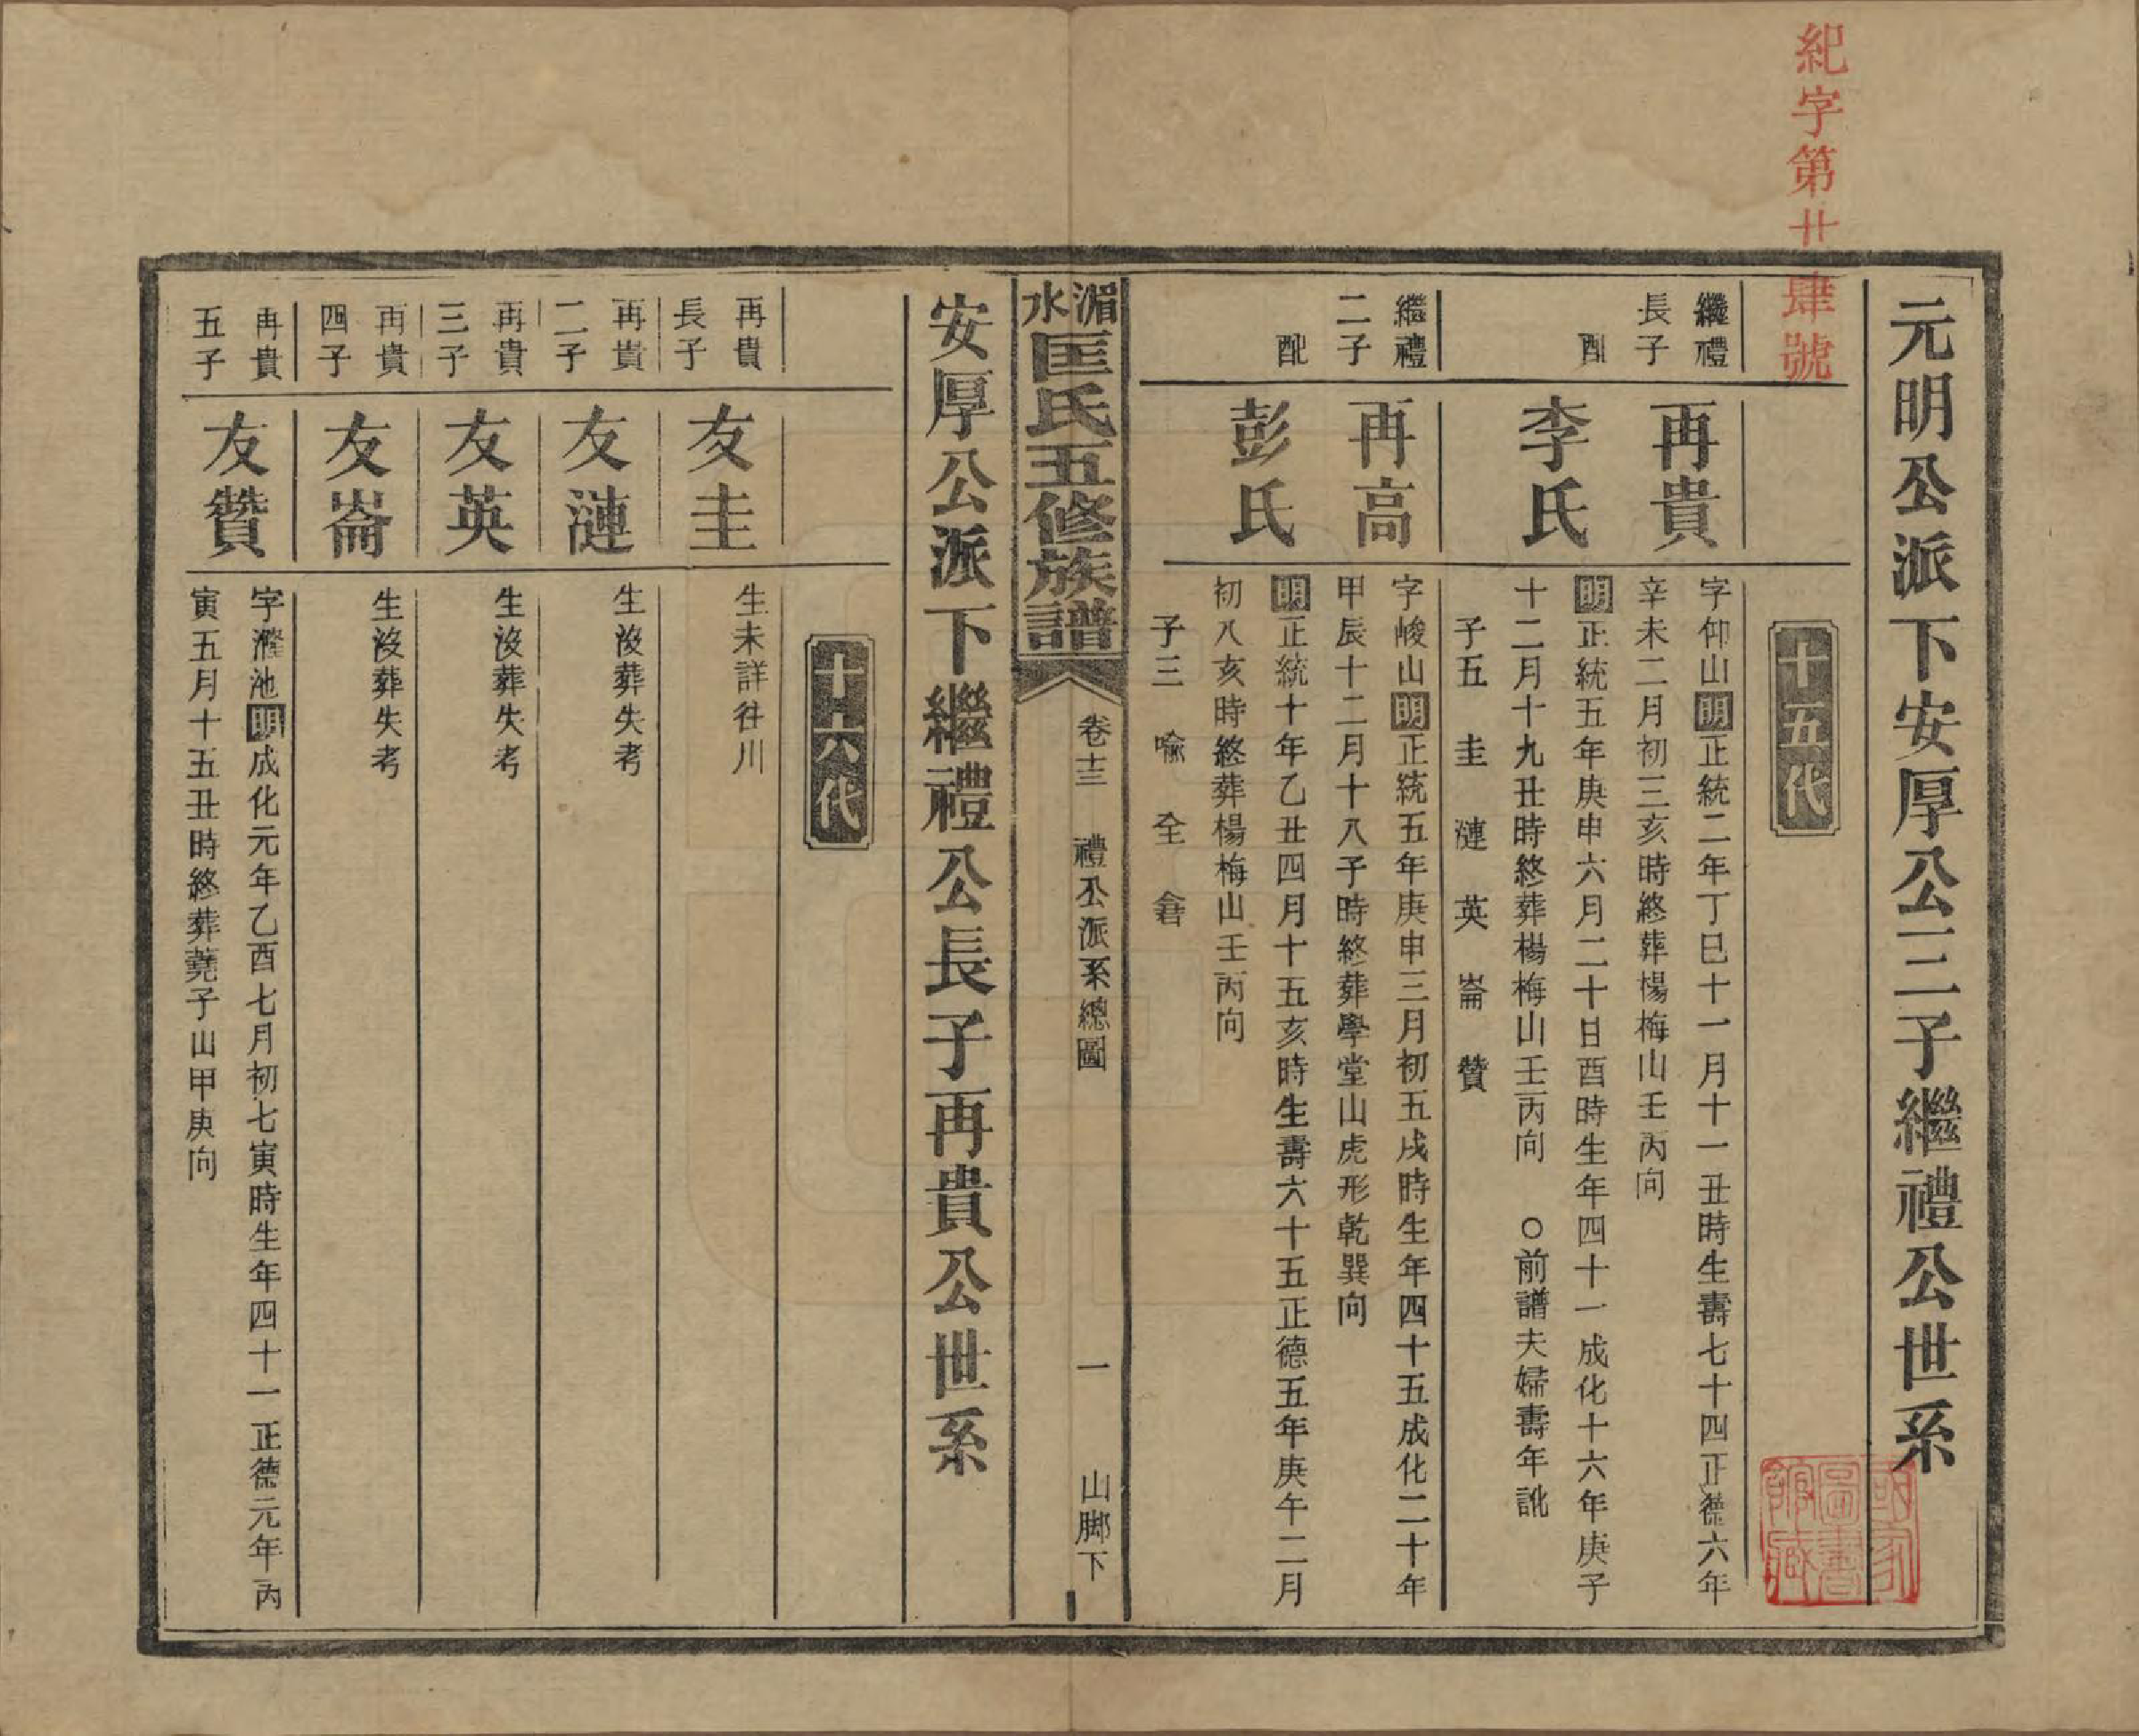 紀字第廿肆號
元明公派下安厚公三子繼禮公世系
十五代
繼禮長子
再貴
字仰山明正統二年丁巳十一月十一丑時生壽七十四正德六年
辛未二月初三亥時終葬楊梅山壬丙向
配
李氏
明正統五年庚申六月二十日酉時生年四十一成化十六年庚子
十二月十九丑時終葬楊梅山壬丙向 ○前譜夫婦壽年訛
子五 圭 漣 英 崙 贊
繼禮二子
再高
字峻山明正統五年庚申三月初五戌時生年四十五成化二十年
甲辰十二月十八子時終葬學堂山虎形乾巽向
配
彭氏
明正統十年乙丑四月十五亥時生壽六十五正德五年庚午二月
初八亥時終葬楊梅山壬丙向
子三 喻 全 畣
湄水匡氏五修族譜
卷十三 禮公派系總圖 一 山腳下
安厚公派下繼禮公長子再貴公世系
十六代
再貴長子
友圭
生未詳往川
再貴二子
友漣
生沒葬失考
再貴三子
友英
生沒葬失考
再貴四子
友崙
生沒葬失考
再貴五子
友贊
字灘池明成化元年乙酉七月初七寅時生年四十一正德元年丙
寅五月十五丑時終葬蕘子山甲庚向
圖書館藏